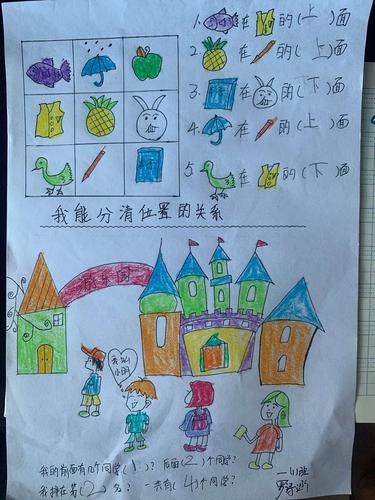 1. 在 的(上)面
2. 在 的(上)面
3. 在 的(下)面
4. 在 的(上)面
5. 在 的(下)面
我能分清位置的关系
游乐园
我是
小明
我的前面有几个同学(1)? 后面(2)个同学?
我排在第(2)名? 一共有(4)个同学?
一、(1)班